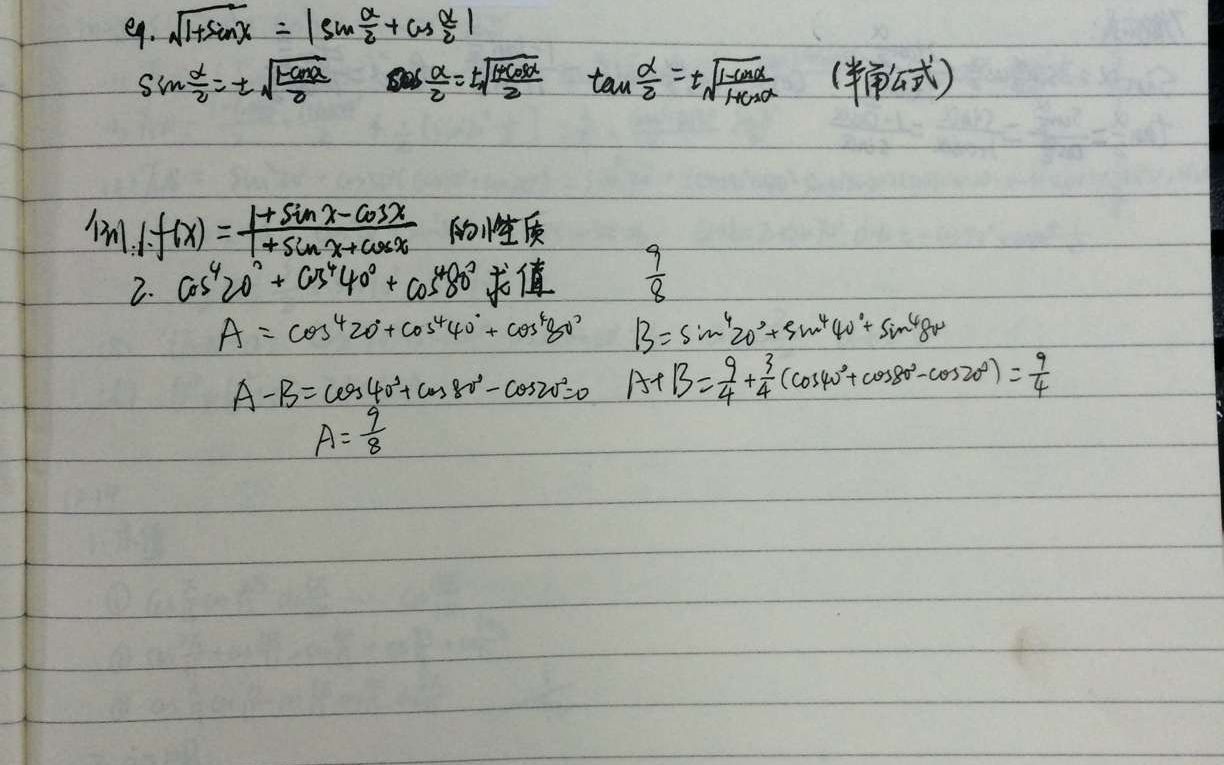 eg. √(1+sinx) = |sin α/2 + cos α/2|
sin α/2 = ± √((1-cosα)/2) cos α/2 = ± √((1+cosα)/2) tan α/2 = ± √((1-cosα)/(1+cosα)) (半角公式)
例.1. f(x) = (1+sinx-cosx)/(1+sinx+cosx) 的性质
2. cos⁴20° + cos⁴40° + cos⁴80° 求值 9/8
A = cos⁴20° + cos⁴40° + cos⁴80° B = sin⁴20° + sin⁴40° + sin⁴80°
A-B = cos40° + cos80° - cos20° = 0 A+B = 9/4 + 3/4 (cos40° + cos80° - cos20°) = 9/4
A = 9/8